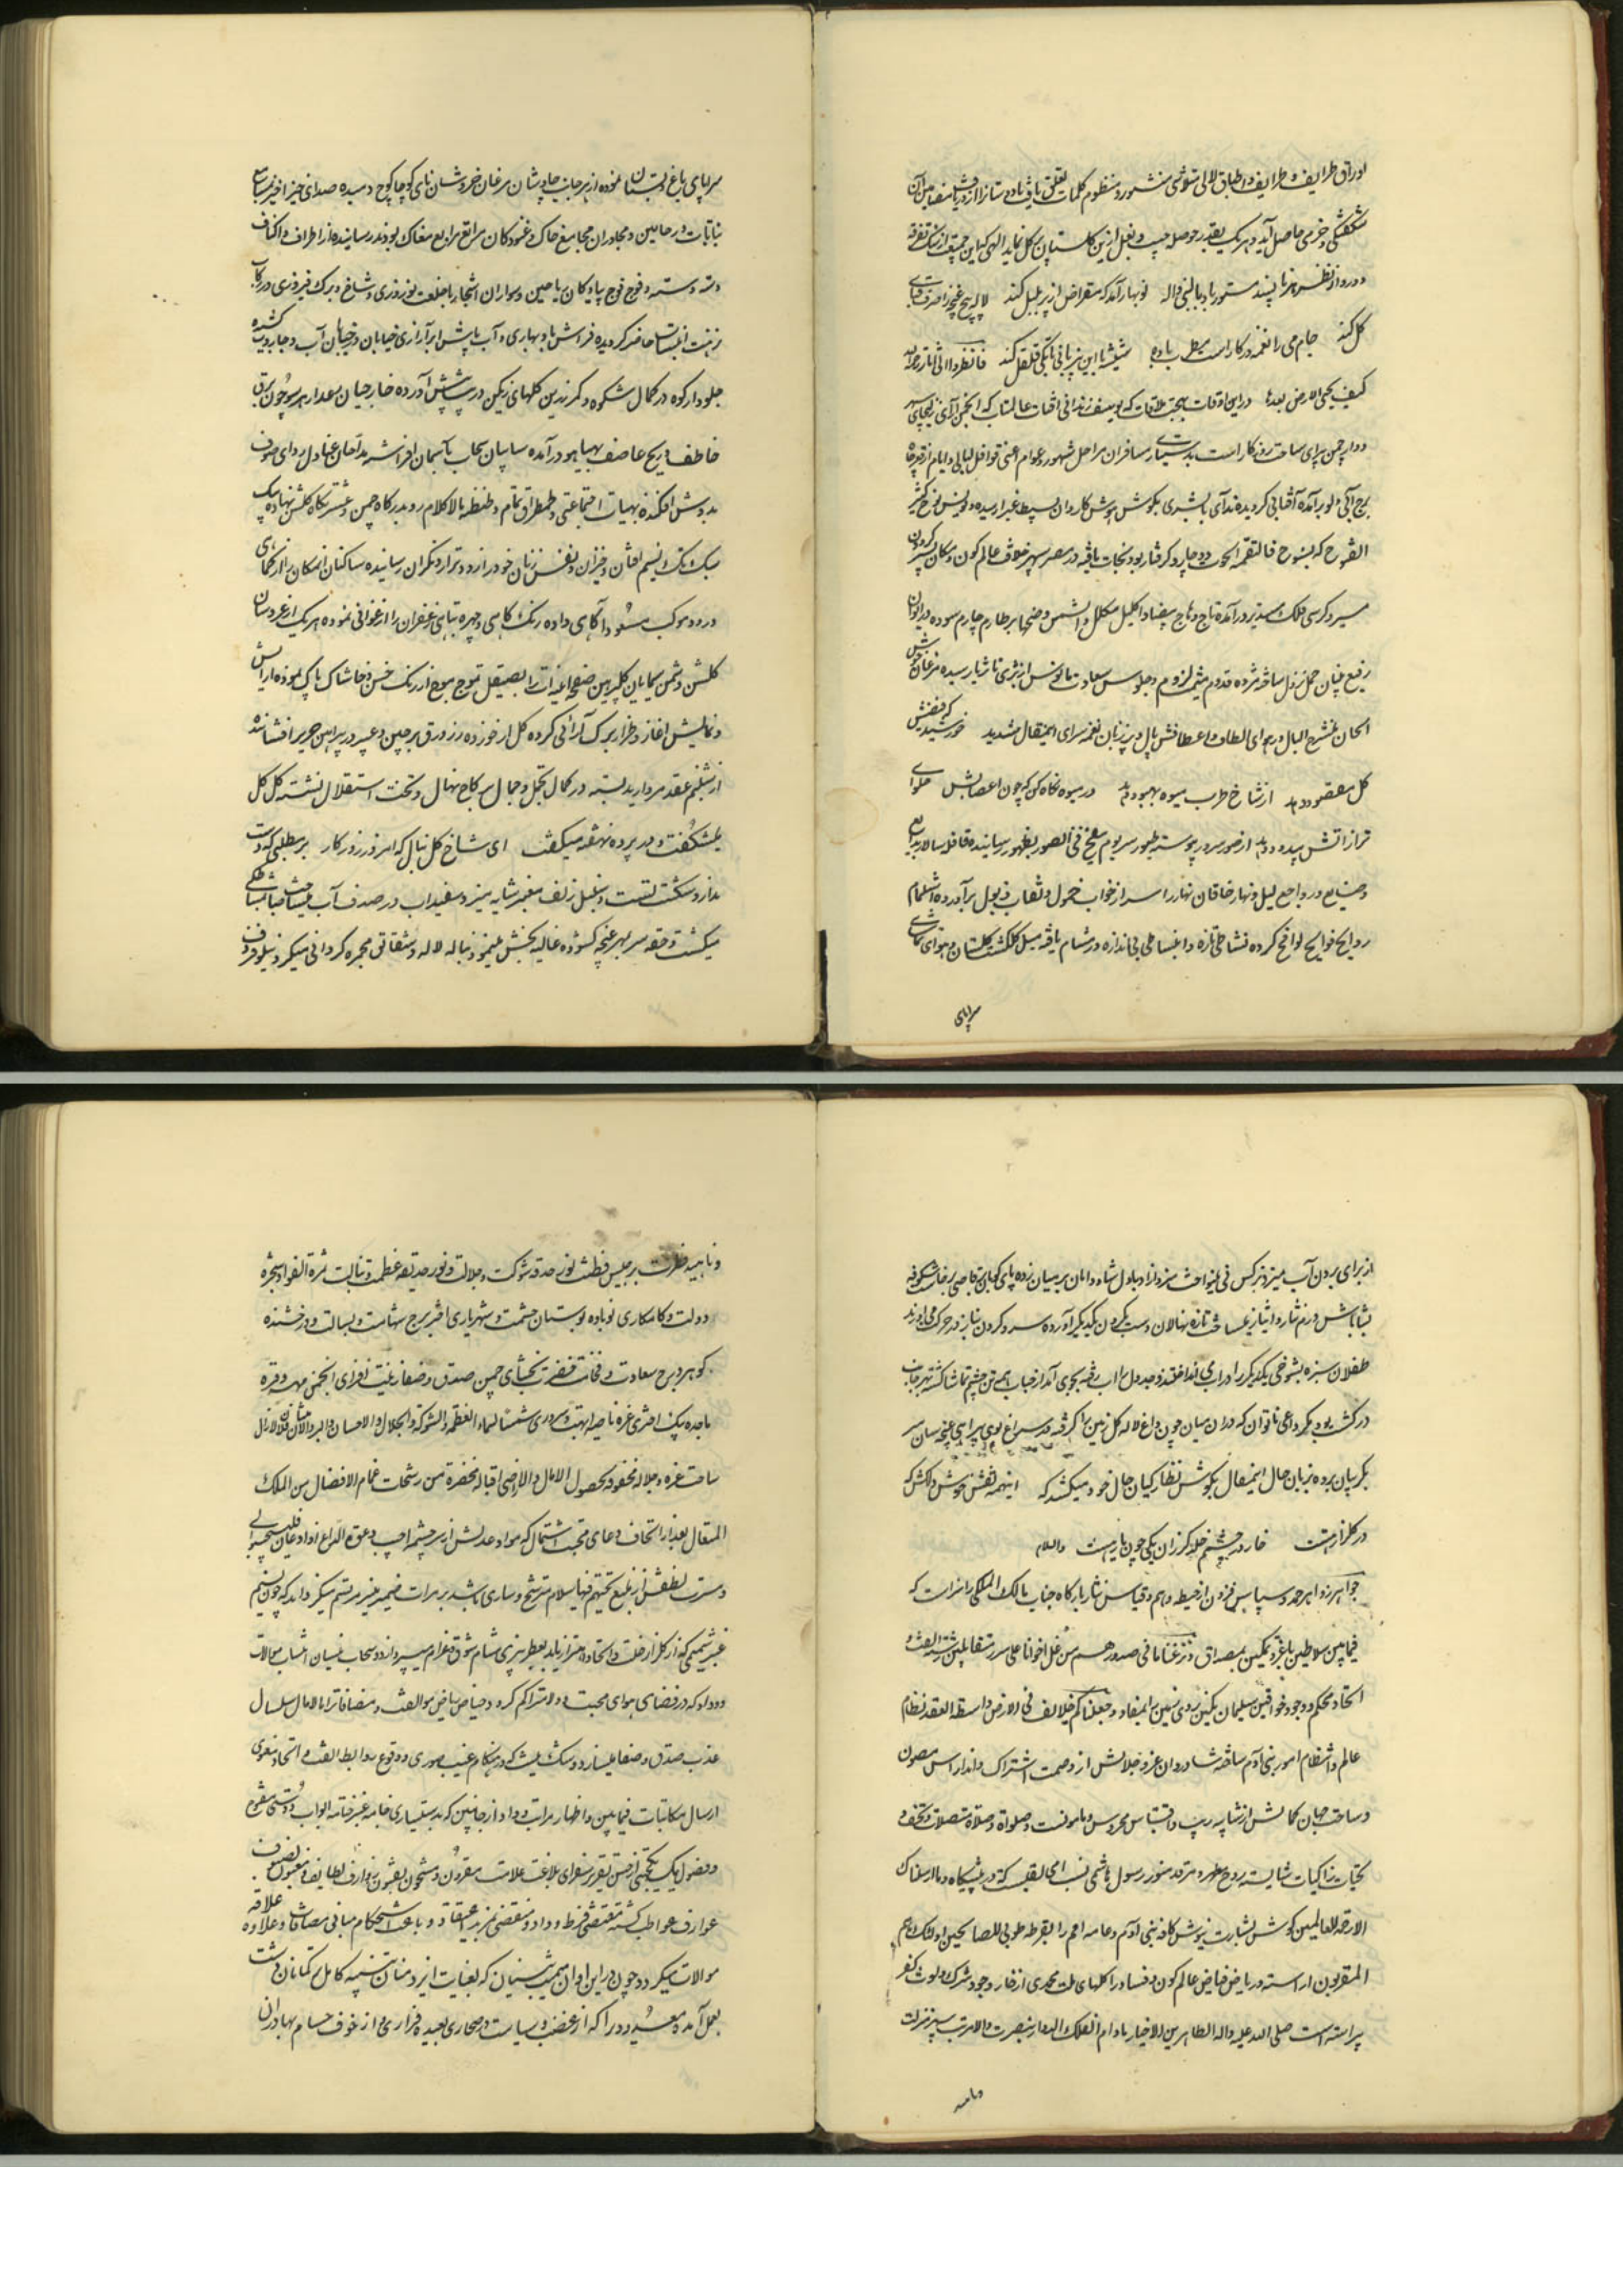 اوراق ظرایف و طرایف و اطباق لالی منثور و منظوم کلمات
شکفتگی و خرمی حاصل آید و هر یک بقدر حوصله جیب و بغل ازین گلستان پر گل نماید الهی که این جمعیت از سنگ تفرقه
دور و از نظر هر ناپسند مستور باد بالنبی و اله نوبهار آمد که مقراض از پر بلبل کند لاله پیچ غنچه را صرف قبای
گل کند جام می را نغمه در کار است مطرب باده شیشه با این بی زبانی تا بکی قلقل کند فانظروا الی اثار رحمة الله
کیف یحیی الارض بعدها در این اوقات بهجت علامات که یوسف زندانی افتاب عالمتاب که انجمن آرای زلیخای سپهر
دوار چمن پیرای ساحت روزگار است بدستیاری سیاره مسافران مراحل شهور و عوام اعنی قوافل لیالی و ایام از قعر چاه
برج آبی دلو برآمده آفتابی گردیده ندای یا بشری بگوش هوش کاروان بسیط غبرا رسیده و یونس نوح
الفتوح که بسنوح فالتقمه الحوت دچار و گرفتار بود نجات یافته در مصر سپهر خلافت عالم کون و مکان
سریر و کرسی فلک مستدیر درآمده تاج وهاج بیضا و اکلیل مکلل والشمس وضحیها بر طارم چارم سوده در ایوان
رفیع بنیان حمل نزول ساخته مژده قدوم میمنت لزوم و جلوس سعادت مانوس از ثری تا ثریا رسیده مرغان خوش
الحان منشرح البال در هوای الطاف و اعطافش بال و پر زنان نغمه سرای اینمقال شدند خورشید که فیضش
گل مقصود دهد از شاخ طرب میوه بهبود دهد در میوه نگاه کن که چون اعصابش حلوای
تر از آتش بیدود دهد از صور سرور پیوسته طیور سر یوم ینفخ فی الصور بظهور رسانیده قافله سالار بدایع
و صنایع در رواجع لیل و نهار خاقان نهار را سر از خواب خمول و نقاب ذبول برآورده استشمام
روایح فوایح لواقح کرده نشاطی تازه و انبساطی بی اندازه در مشام یافته میل گلگشت گلستان و هوای تماشای
سراپای
سراپای باغ و بستان نموده از هر جانب چاوشان مرغان خروشان نای کوچاکوچ دمیده صدای خیزاخیز بمسامع
نباتات و ریاحین و مجاوران مجامع خاک و غنودگان مراقع مرابع مغاک بودند رسانیده از اطراف و اکناف
دسته دسته و فوج فوج پیادگان ریاحین و سواران اشجار با خلعت نوروزی و شاخ و برگ فیروزی در رکاب
نزهت انتساب حاضر گردیده فراش باد بهاری و آب پاش ابر آزاری خیابان در خیابان آب و جاروب کشیده
جلودار کوه در کمال شکوه و کمر زرین گلهای رنگین در پیش آورده خار جهان هر سو چون برق
خاطف و ریح عاصف بهیاهو درآمده سایبان سحاب بآسمان افراشته مداحان عنادل ردای صوف
بدوش افکنده بهیات اجتماعی و طمطراق تمام و طنطنه بالاکلام رو بدرگاه چمن و عشرتگاه گلشن نهاده پیک
سبک تک نسیم افتان و خیزان و نفس زنان خود را زود تر از دیگران رسانیده ساکنان انمکان را از
ورود موکب مسعود آگاهی داده رنگ کاهی و چهره تباهی زعفران را ارغوانی نموده هر یک از عروسان
گلشن و ثمن سیمایان گلپیرهن صفحه آینه آب را بصیقل تموج موج از زنگ خس و خاشاک پاک نموده آرایش
و نمایش آغاز و طراز برگ آرائی کرده گل از خورده زر ورق بر جبین و عبیر در پیراهن حریر افشانده
از شبنم عقد مروارید بسته در کمال تجمل و جمال بر کاخ نهال و تخت استقلال نشسته گل گل
میشکفت و در پرده نهفته میگفت ای شاخ گل ببال که امروز روزگار بر مطلبی که دست
ندارد شکست تست و سنبل زلف معنبر شانه میزد و سفیداب در صدف آب مشاطه
میگشت و حقه سر بمهر غنچه گشوده غالیه بخش مینمود پیاله لاله و شقایق مجمره گردانی میکرد نیلوفر ظرف
از برای بردن آب میزد نرگس فی اینواخت سرو ازاد بادل شاد و دامان بر میان زده پای کوبان برقاصی برخاست شکوفه
بشاباش درم نثار و ایثار میساخت تازه نهالان دست بگردن یکدیگر آورده سرو گردن بناز در حرکت می اوردند
طفلان سبزه بشوخی یکدیگر را در اب می انداختند و جدول اب رفته بجوی آمد از حباب همه تن چشم تماشا گشته بهر جانب
در گشت بود مگر داعی ناتوان که در ان میان چون داغ لاله گل زمین را گرفته در سراغ بوی پیراهن غنچه سان سر
بگریبان برده بزبان حال اینمقال بگوش نظارگیان حال خود میکشد که اینهمه نقش خوش دلکش که
در گلزار هست خار در چشم خلد گر زان یکی چون یار هست والسلام
جواهر زواهر حمد و سپاس فزون از حیطه وهم و قیاس نثار بارگاه جناب مالک الملکی را سزاست که
فیمابین سلاطین باعز و تمکین بمصداق و نزعنا ما فی صدورهم من غل اخوانا علی سرر متقابلین رشته الفت و
اتحاد محکم و وجود خواقین سلیمان نگین روی زمین را بمفاد و جعلناکم خلایف فی الارض واسطة العقد نظام
عالم و انتظام امور بنی آدم ساخته شادروان عز و جلالش از وصمت اشتراک و اندراس مصون
و ساحت جهان کمالش از شایبه ریب و اقتباس محروس و مامونست و صلواة و صلاة متصلات و تحف و
تحیات زاکیات شایسته روح مطهر و مرقد منور رسول هاشمی نسب امی لقبیست که در پیشگاه و ما ارسلناک
الا رحمة للعالمین گوش بشارت نیوش کافه بنی آدم و عامه امم را بقرطه طوبی للصالحین اولئک هم
المقربون اراسته و ریاض فیاض عالم کون و فساد را گلهای ملت محمدی از خار وجود شرک و لوث کفر
پیراسته است صلی الله علیه و اله الطاهرین الاخیار مادام الفلک الدوار بنصرت والامرتبت سپهر منزلت
و ناهید
و ناهید فطرت برجیس فطنت نور حدقه شوکت و جلالت و نور حدیقه عظمت و نبالت ثمرة الفواد شجره
دولت و کامکاری نوباوه بوستان حشمت و شهریاری اختر برج شهامت و بسالت و درخشنده
گوهر درج سعادت و فخامت نضرت بخشای چمن صدق و صفا زینت افزای انجمن مهر و
باجده یکتا اختر غره ناصیه ابهت و سروری شمسا لسماء العظمة و الشوکة و الجلال و الاحسان و البر و الامتنان لازال
ساحت عزه و جلاله محفوفة بحصول الامال و الاراضی اقباله مخضرة من رشحات غمام الافضال من الملک
المتعال بعد از اتحاف دعای محبت اشتمال که مواد عدلش از سرچشمه اجیب دعوة الداع اذا دعان فلیستجیبوا لی
و مسرت لطفش از منبع تحیتهم فیها سلام مترشح و ساری باشد بر مرات ضمیر منیر مرتسم میگرداند که چون نسیم
عنبر شمیمی که از گلزار خلت و اتحاد اهتزاز یابد بعطربیزی مشام شوق و غرام میپردازد و سحاب نیسان انتساب موالات
و وداد که در فضای هوای محبت و ولا متراکم گردد حیاض ریاض موالفت و مصافات را مالامال سلسال
عذب صدق و صفا میسازد و شک نیست که در هنگام غیبت صوری وقوع روابط الفت و اتحاد معنوی
ارسال مکاتبات فیمابین و اظهار مراتب وداد از جانبین که بدستیاری خامه عنبر ختامه ابواب دوستی مفتوح
و فصول یکجهتی از حسن تقریر سفرای بلاغت علامت مقرون و مشحون بفنون عوارف لطایف و
عوارف عواطف گشته مقتضی فرط وداد و مقتضی مزید اعتقاد و باعث استحکام مبانی مصافات و علاوه علاقه
موالات میگردد چون در این اوان میمنت بنیان که بعنایت ایزد منان تنبیه کامل ترکمانان دشت
بعمل آمده و معدودی را که از غضب و سیاست در صحاری بعیده فراری و از خوف حسام بهادران